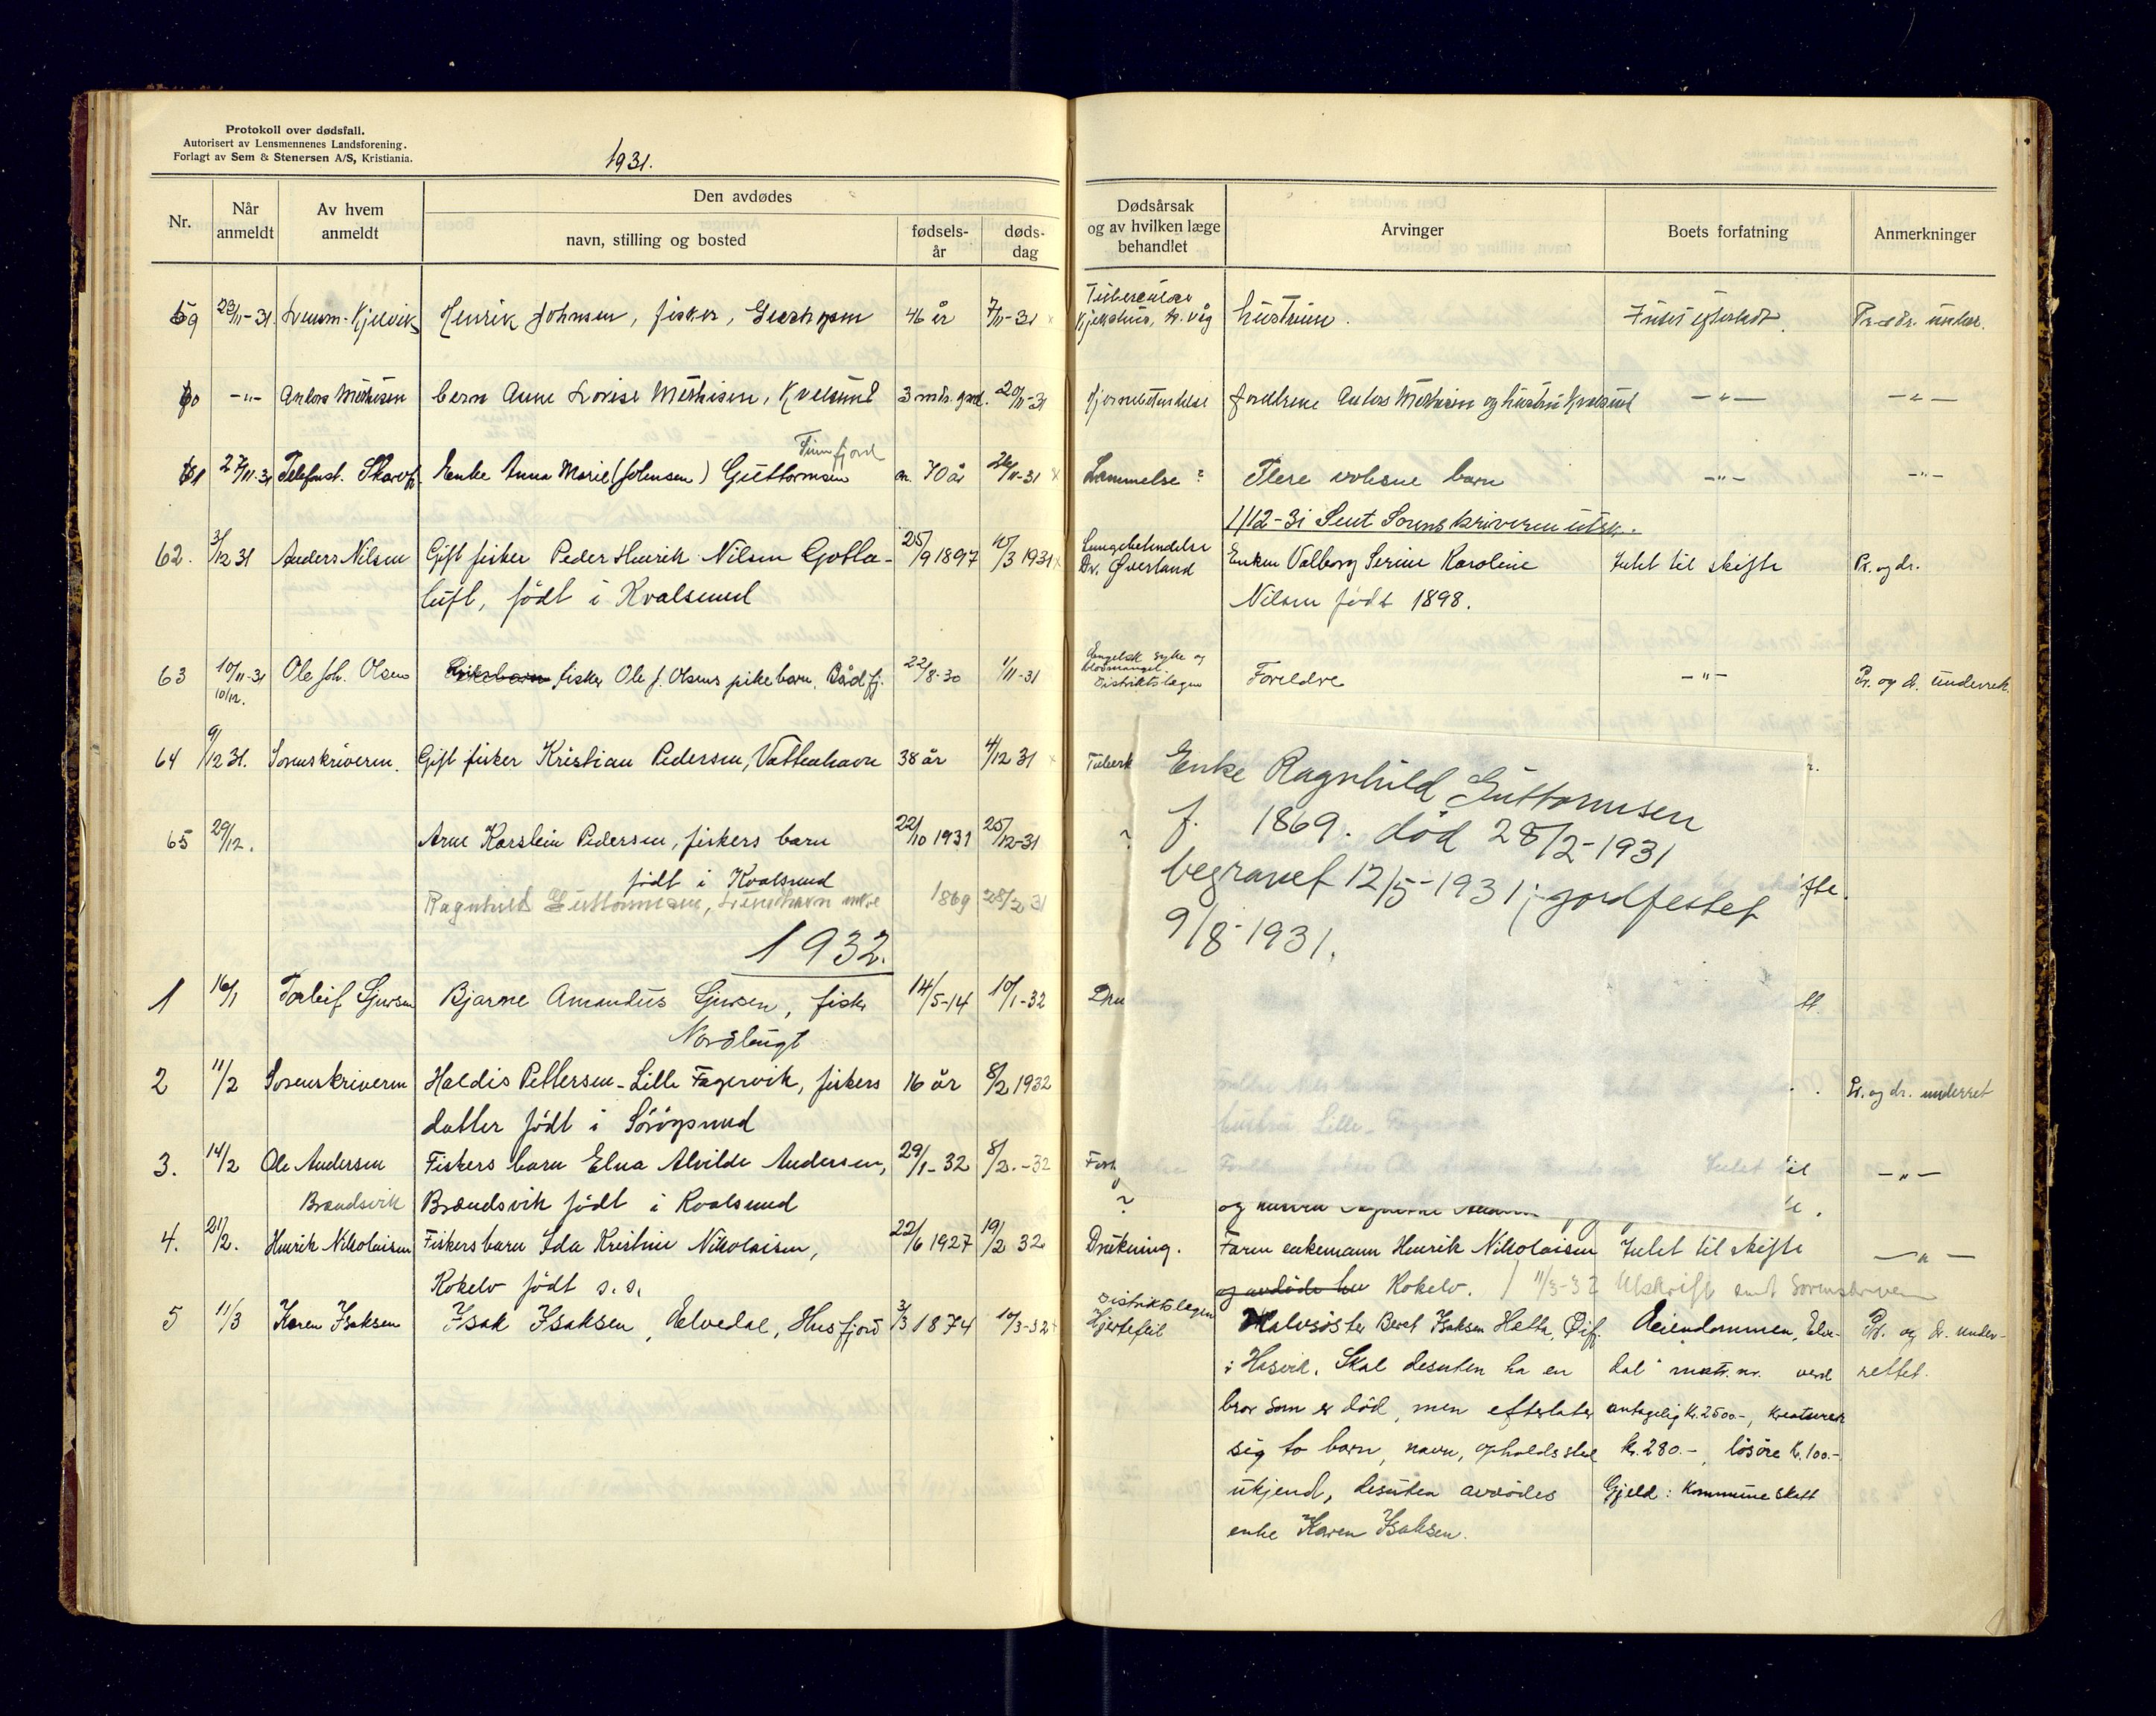 Protokoll over dødsfall.
Autorisert av Lensmennenes Landsforening.
Forlagt av Sem & Stenersen A/S, Kristiania.
1931.
Nr.
Når anmeldt
Av hvem anmeldt
Den avdødes
navn, stilling og bosted
fødsels-år
døds-dag
Dødsårsak og av hvilken læge behandlet
Arvinger
Boets forfatning
Anmerkninger
59 23/11-31 Lensm. Kjelvik Henrik Johnsen, fisker, 46 år 7/11-31 hustruen. Intet efterladt.
60 -"- Anders Mathisen barn Anne Lovise Mathisen, Kvalsund 3 mdr. gml. 20/11-31 Hjernebetendelse foreldrene Anders Mathisen og hustru Kvalsund -"- -"-
61 27/11.31 Telefonst. Enke Anna Marie (Johnsen) Guttormsen 70 år 26/11-31 Lammelse? Flere voksne barn -"- -"-
1/12-31 Sent Sorenskriveren utskr.
62. 3/12 31 Anders Nilsen Gift fisker Peder Henrik Nilsen Gotta- 25/9 1897 10/3 1931 Lungebetendelse Dr. Øverland Enken Valborg Serine Karoline Intet til skifte Pr. og dr.
luft, født i Kvalsund Nilsen født 1898.
63 10/11-31 10/12. Ole Joh. Olsen fisker Ole J. Olsens pikebarn, 22/8-30 1/11-31 Engelsk syke og blodmangel. Distriktslægen Foreldre -"- Pr. og dr. underret.
64 9/12 31. Sorenskriveren. Gift fisker Kristian Pedersen, Vattenhavn 38 år 4/12 31 Tuberk
65 29/12. Arne Karstein Pedersen, fiskers barn 22/10 1931 25/12-31 ?
født i Kvalsund
Ragnhild Guttormsen, 1869 28/2 31
Enke Ragnhild Guttormsen
f. 1869. død 28/2-1931
begravet 12/5-1931; jordfestet
9/8-1931.
1932.
1 16/1 Torleif Sjursen Bjarne Amandus Sjursen, fisker 14/5-14 10/1-32 Dru
2 11/2 Sorenskriveren Haldis Pettersen - Lille Fagervik, fiskers 16 år 8/2 1932 Pr. og dr. underret
datter født i
3. 14/2 Ole Andersen Fiskers barn Elna Alvilde Andersen, 29/1-32 8/2.-32 til -"-
Brandsvik Brandsvik født i Kvalsund ?
4. 21/2. Henrik Nikolaisen Fiskers barn Ida Kristine Nikolaisen, 22/6 1927 19/2 32 Drukning. Faren enkemann Henrik Nikolaisen Intet til skifte -"-
Kokelv født s.s. og avdøde hu Kokelv. 11/3-32 Utskrift sent Sorenskriveren
5 11/3 Karen Isaksen Isak Isaksen, Elvedal, Husfjord 3/3 1874 10/3-32 Distriktslægen Hjertefeil Halvsøster Beret Isaksen Hætta, Øifj. Eiendommen, Elve- Pr. og dr. under-
i Hasvik. Skal desuten ha en dal matr. nr. verd rettet.
bror som er død, men efterlater antagelig kr. 2500.-, kreaturer
sig to barn, navn, opholdssted kr. 280.-, løsøre kr. 100.-
ukjend, desuten avdødes Gjeld: Kommuneskatt
enke Karen Isaksen.